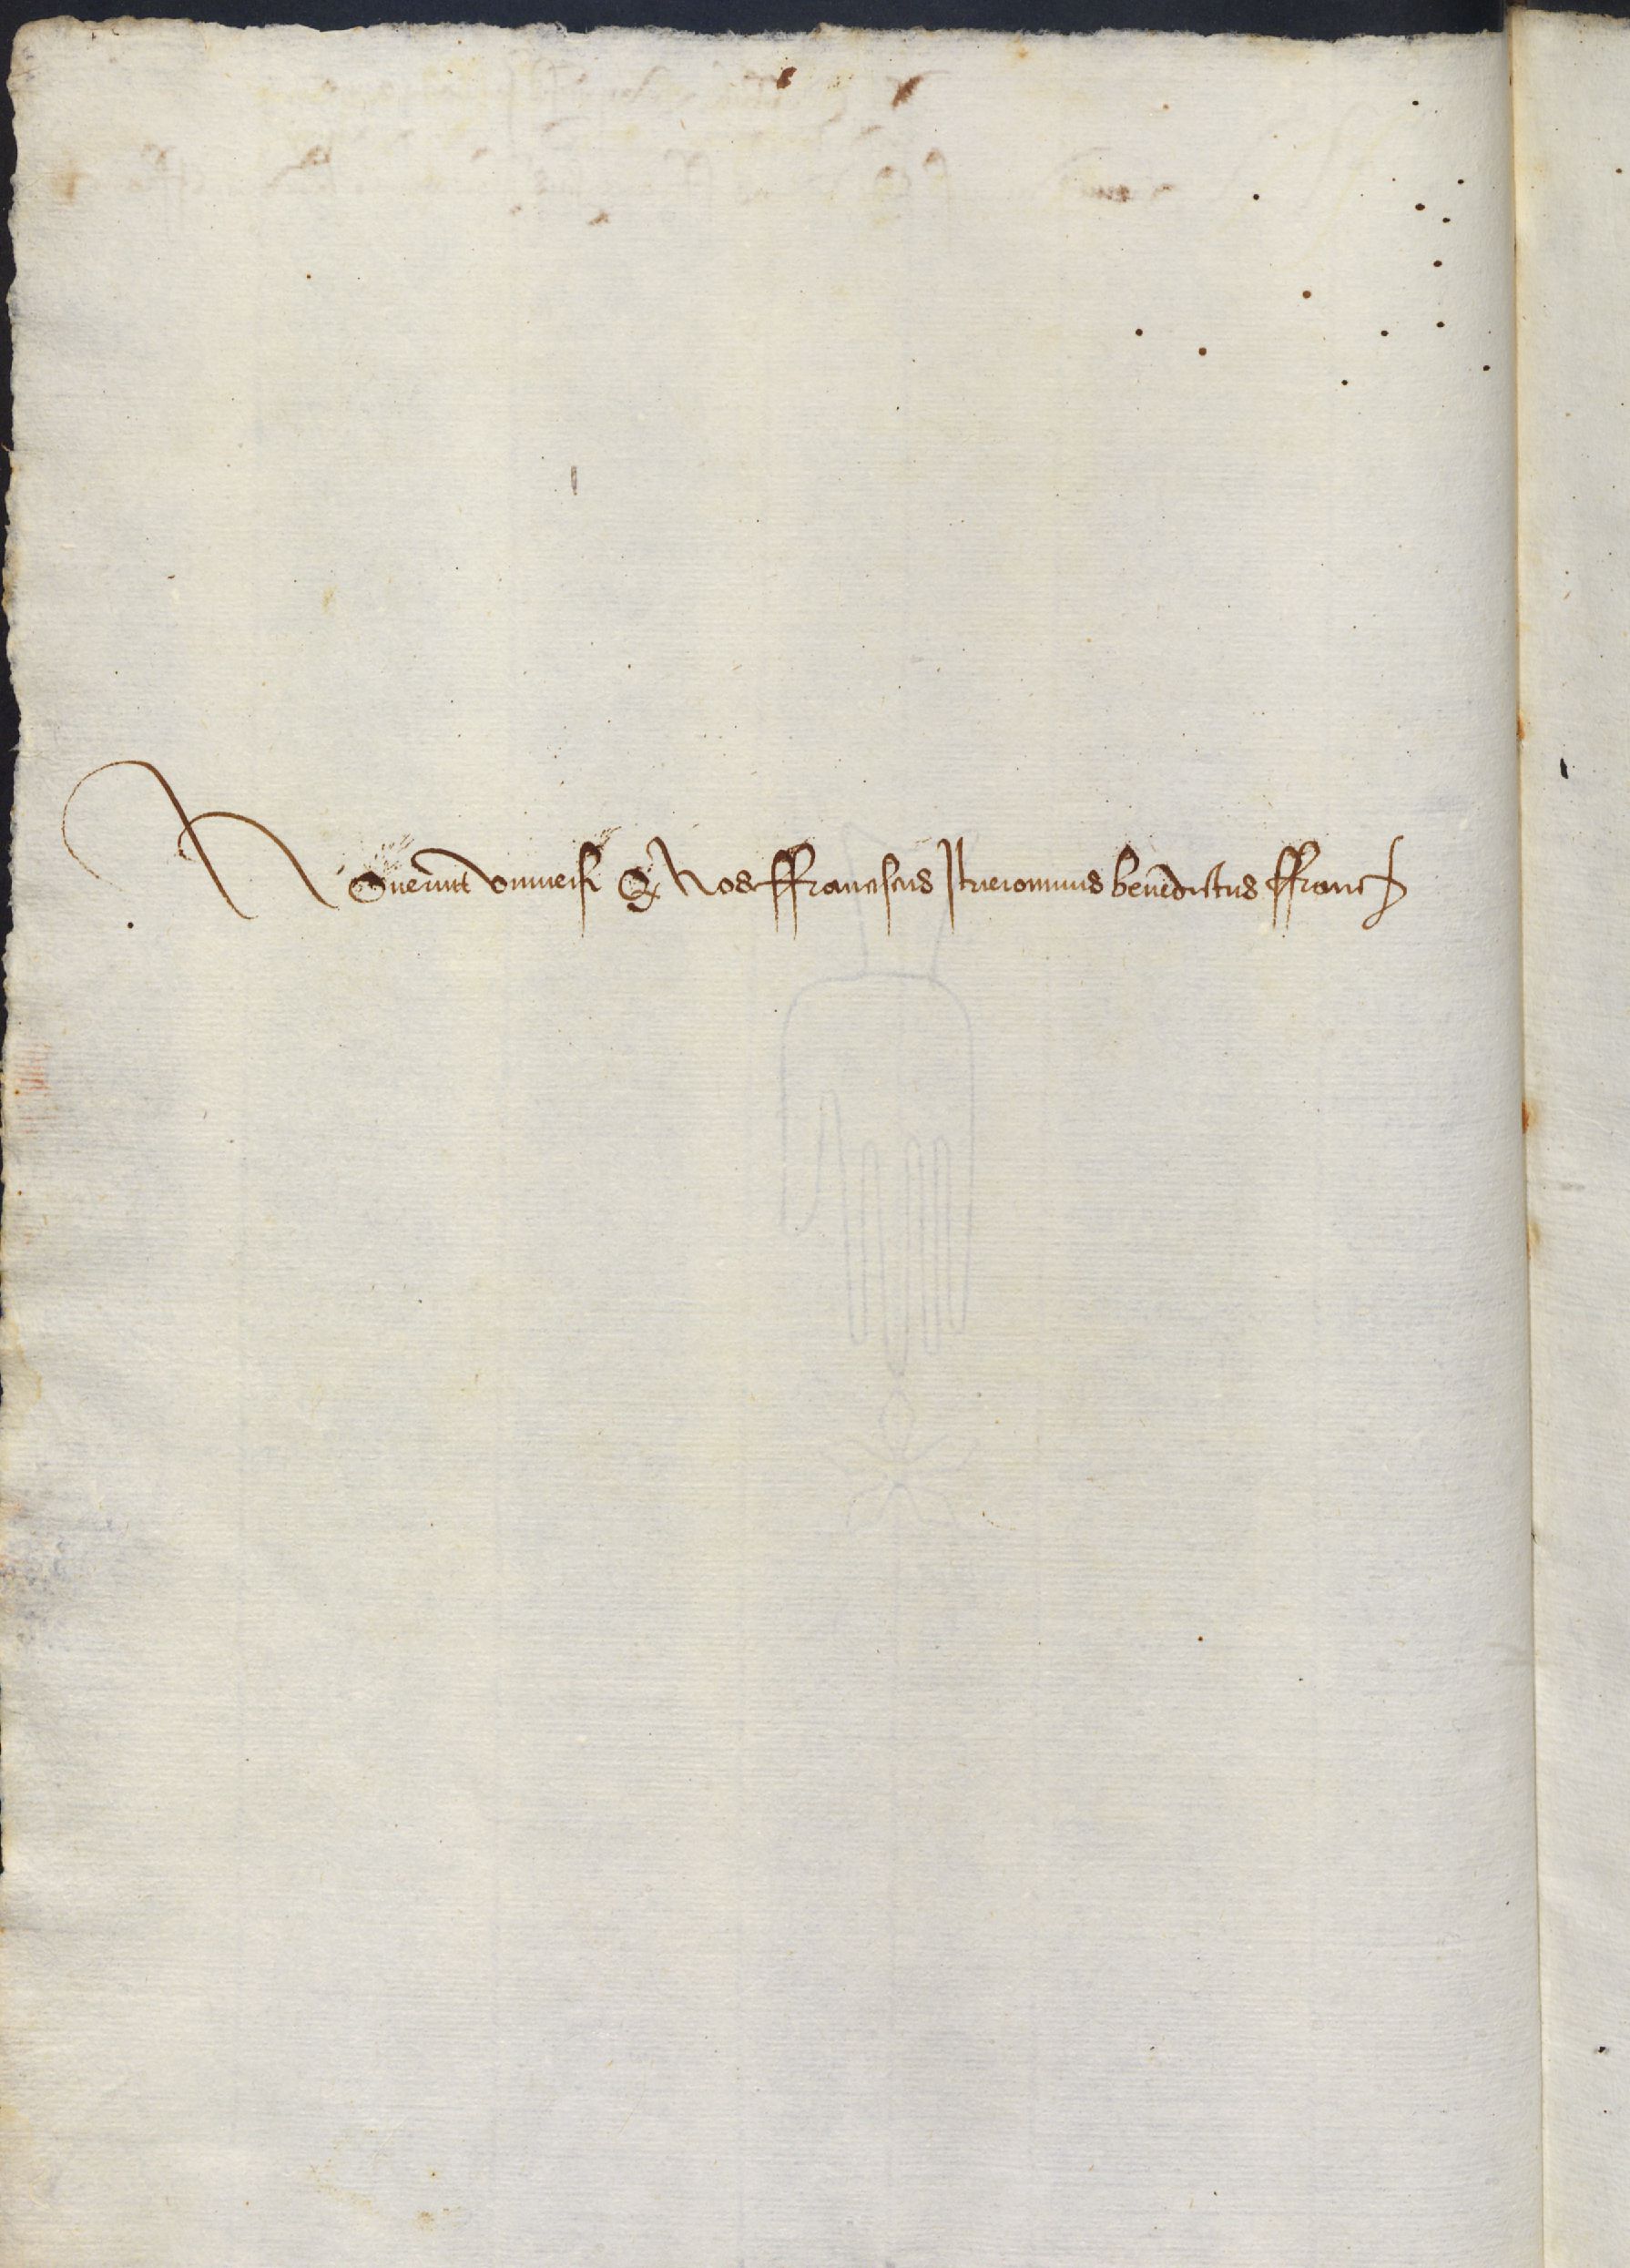 Noverint vniuersi Q Nos ffranciscus Jheronimus benedictus ffranc